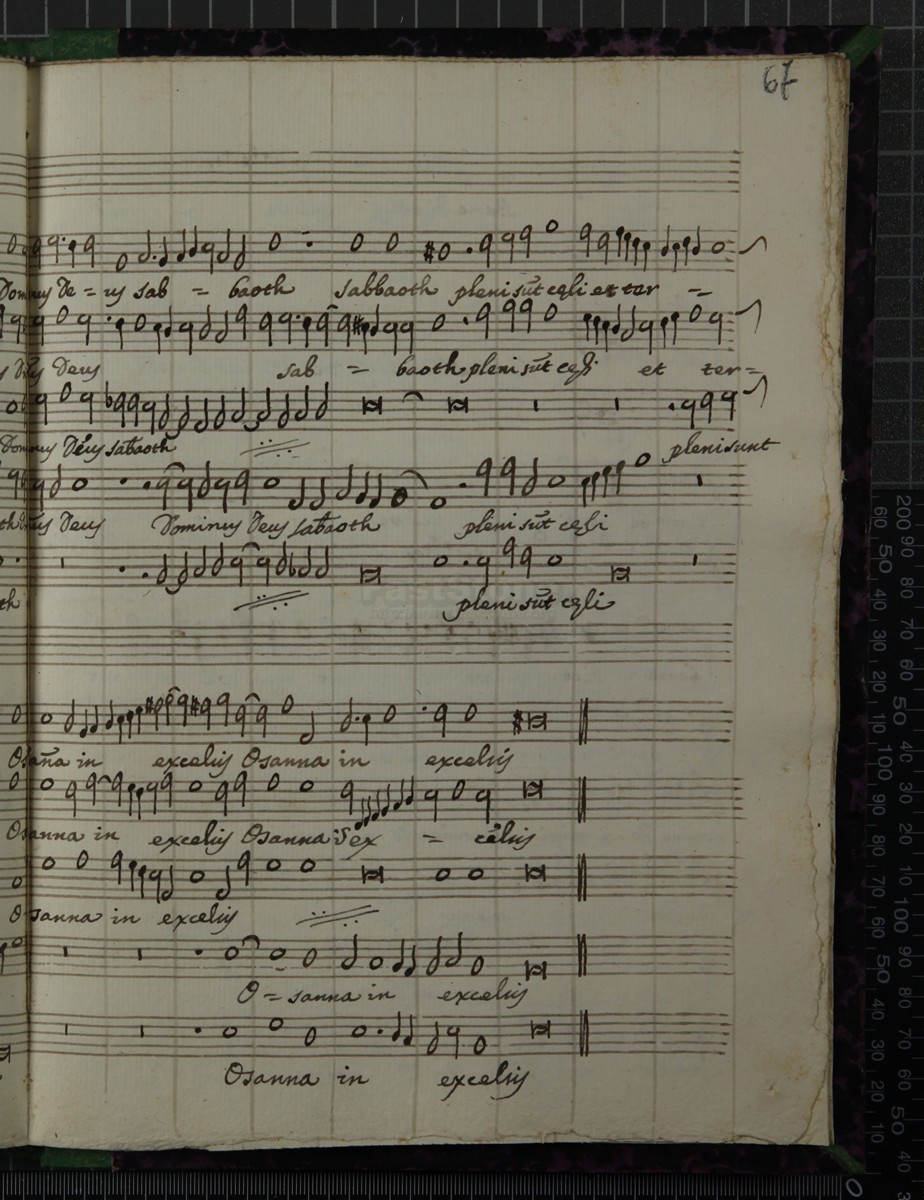 67
Dominus De = us sab = baoth sabbaoth pleni sūt cęli et ter =
Deus sab = baoth pleni sūt cęli et ter =
Dominus Deus sabaoth pleni sunt
Deus Dominus Deus sabaoth pleni sūt cęli
th pleni sūt cęli
Osāna in excelsis Osanna in excelsis
Osanna in excelsis Osanna ex = celsis
Osanna in excelsis
O = sanna in excelsis
Osanna in excelsis